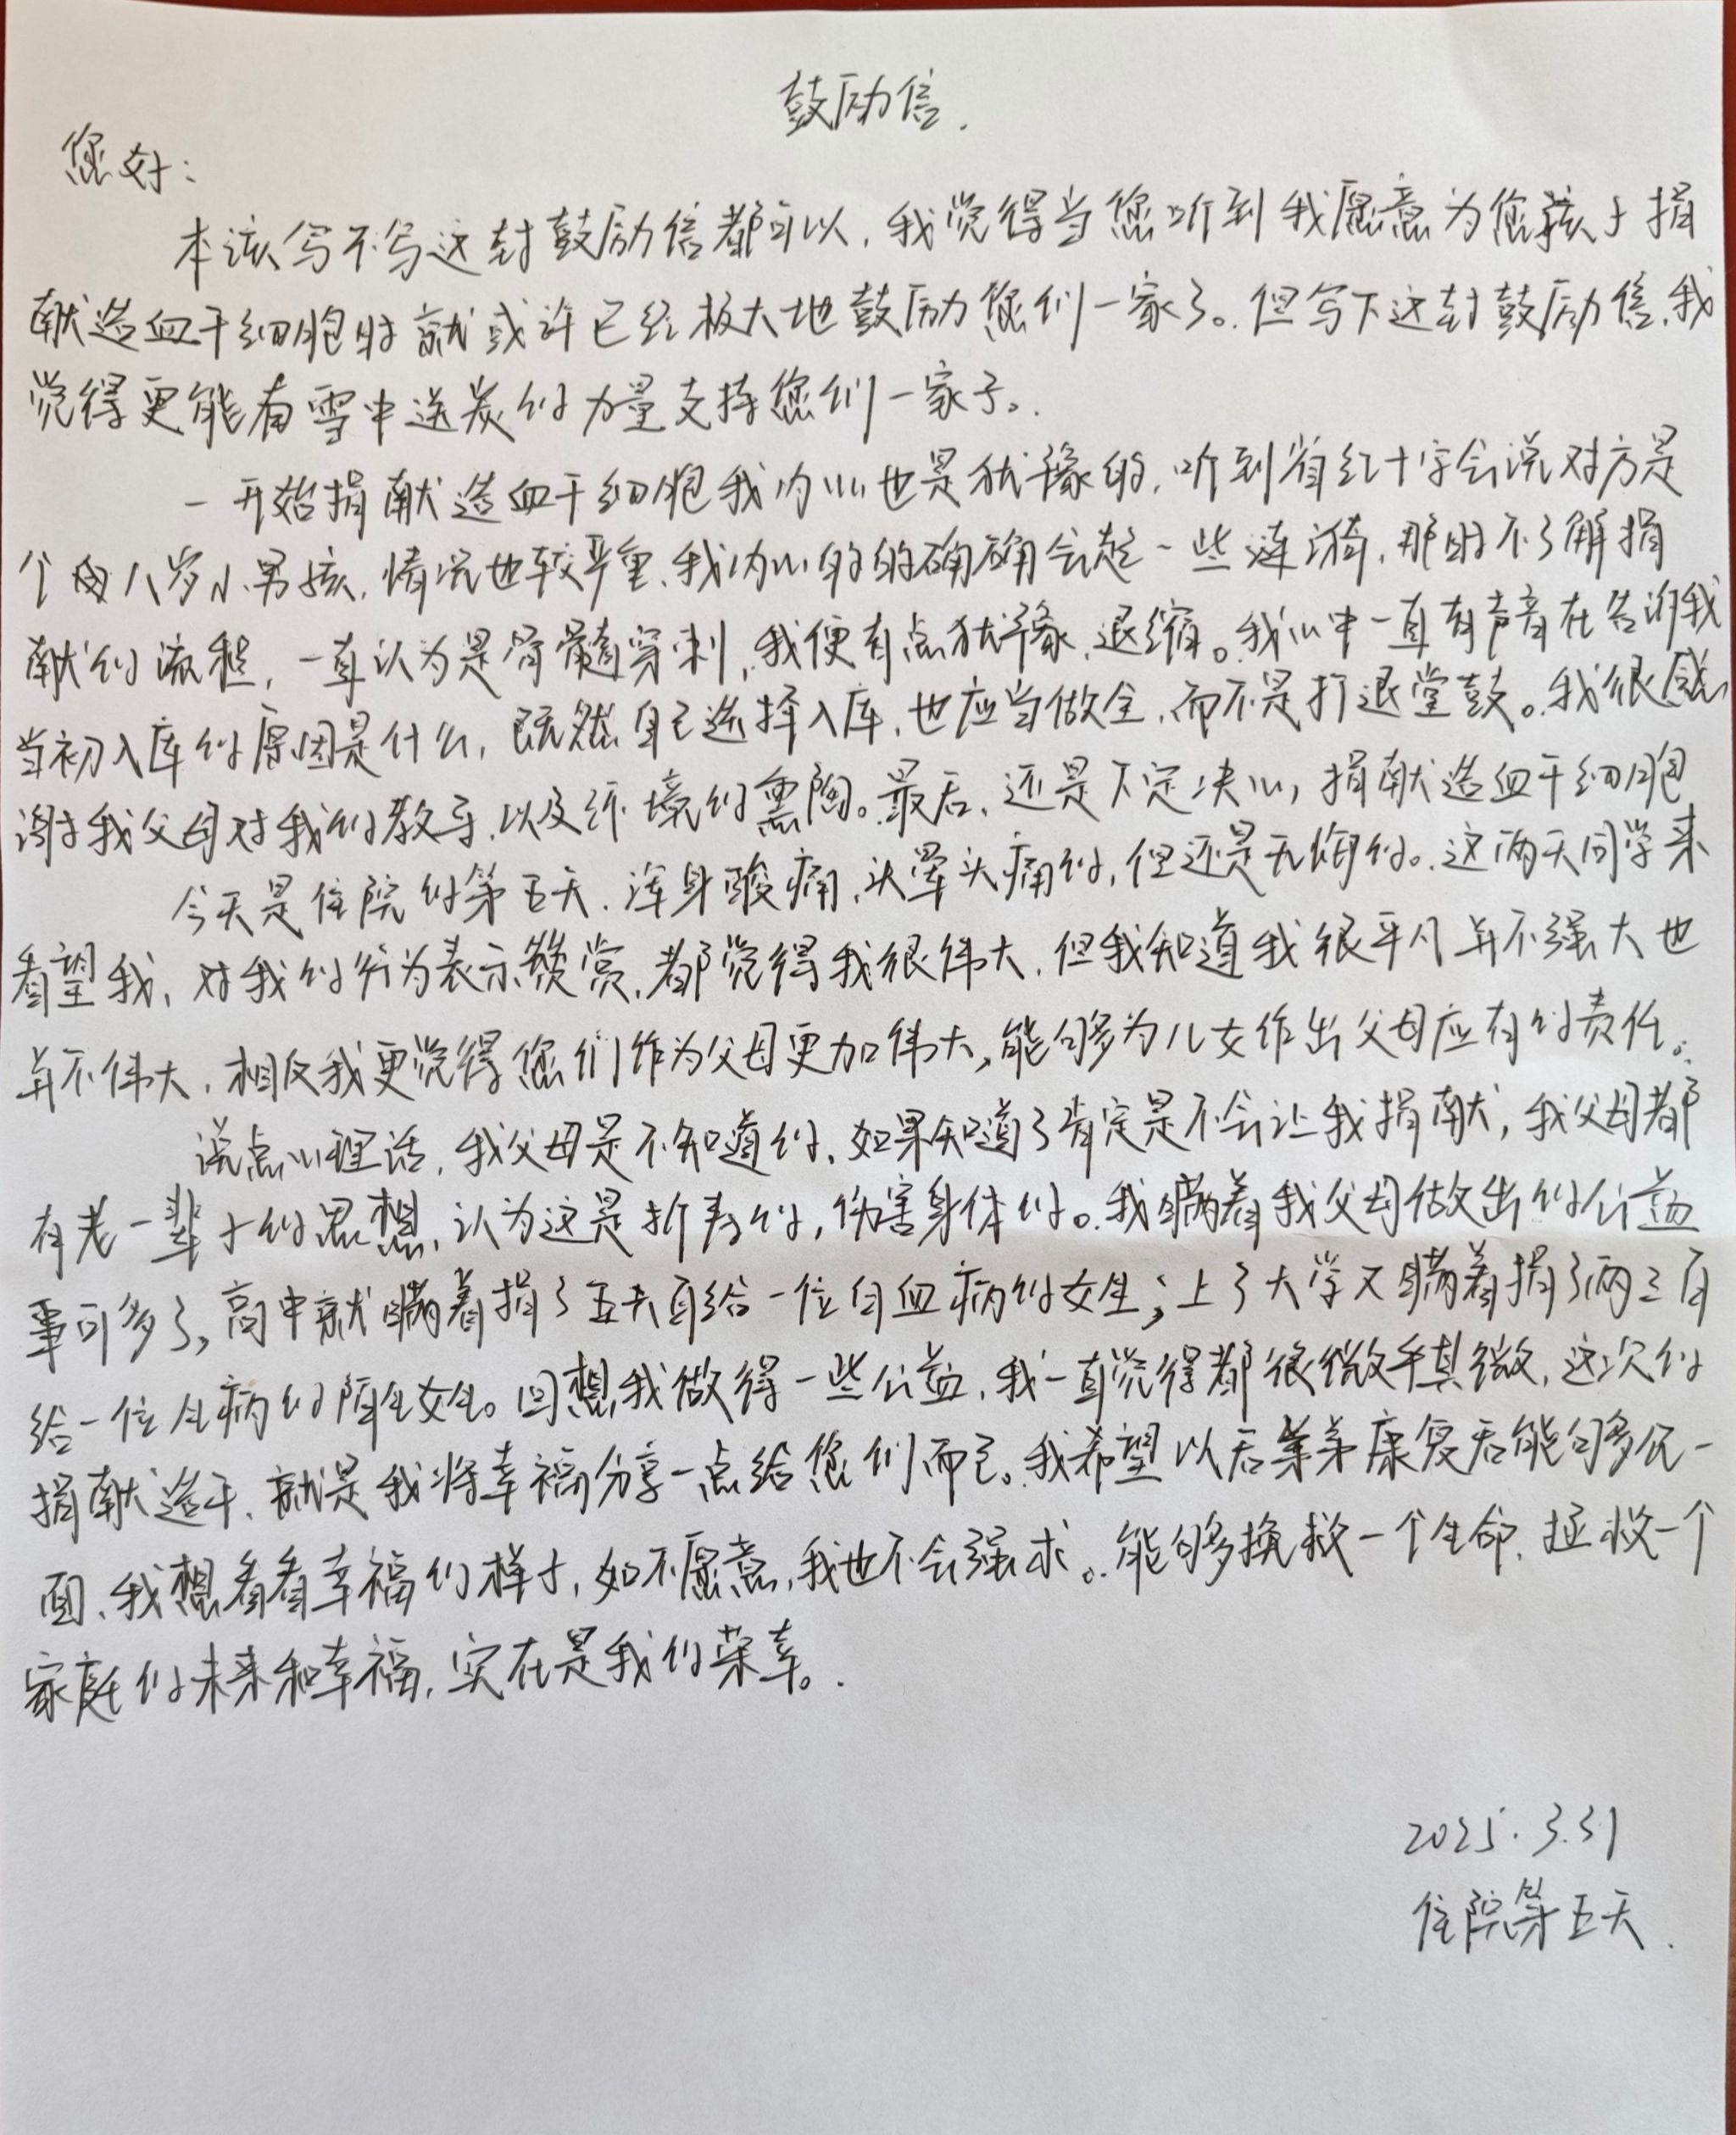 鼓励信.
您好:
本该写不写这封鼓励信都可以,我觉得当您听到我愿意为您孩子捐
献造血干细胞时就或许已经极大地鼓励您们一家了。但写下这封鼓励信,我
觉得更能有雪中送炭的力量支持您们一家子。
一开始捐献造血干细胞我内心也是犹豫的,听到省红十字会说对方是
个八岁小男孩,情况也较严重,我内心的的确确会起一些涟漪,那时不了解捐
献的流程,一直认为是骨髓穿刺,我便有点犹豫、退缩。我心中一直有声音在告诉我
当初入库的原因是什么,既然自己选择入库,也应当做全,而不是打退堂鼓。我很感
谢我父母对我的教导,以及环境的熏陶。最后,还是下定决心,捐献造血干细胞
今天是住院的第五天,浑身酸痛,头晕头痛的,但还是无悔的。这两天同学来
看望我,对我的行为表示赞赏,都觉得我很伟大,但我知道我很平凡并不强大也
并不伟大,相反我更觉得您们作为父母更加伟大,能够为儿女作出父母应有的责任。
说点心理话,我父母是不知道的,如果知道了肯定是不会让我捐献,我父母都
有老一辈子的思想,认为这是折寿的,伤害身体的。我瞒着我父母做出的公益
事可多了,高中就瞒着捐了五六百给一位白血病的女生;上了大学又瞒着捐了两三百
给一位生病的陌生女生。回想我做得一些公益,我一直觉得都很微乎其微,这次的
捐献造干,就是我将幸福分享一点给您们而已。我希望以后弟弟康复后能够见一
面,我想看看幸福的样子,如不愿意,我也不会强求。能够挽救一个生命,拯救一个
家庭的未来和幸福,实在是我的荣幸。
2025.3.31
住院第五天.